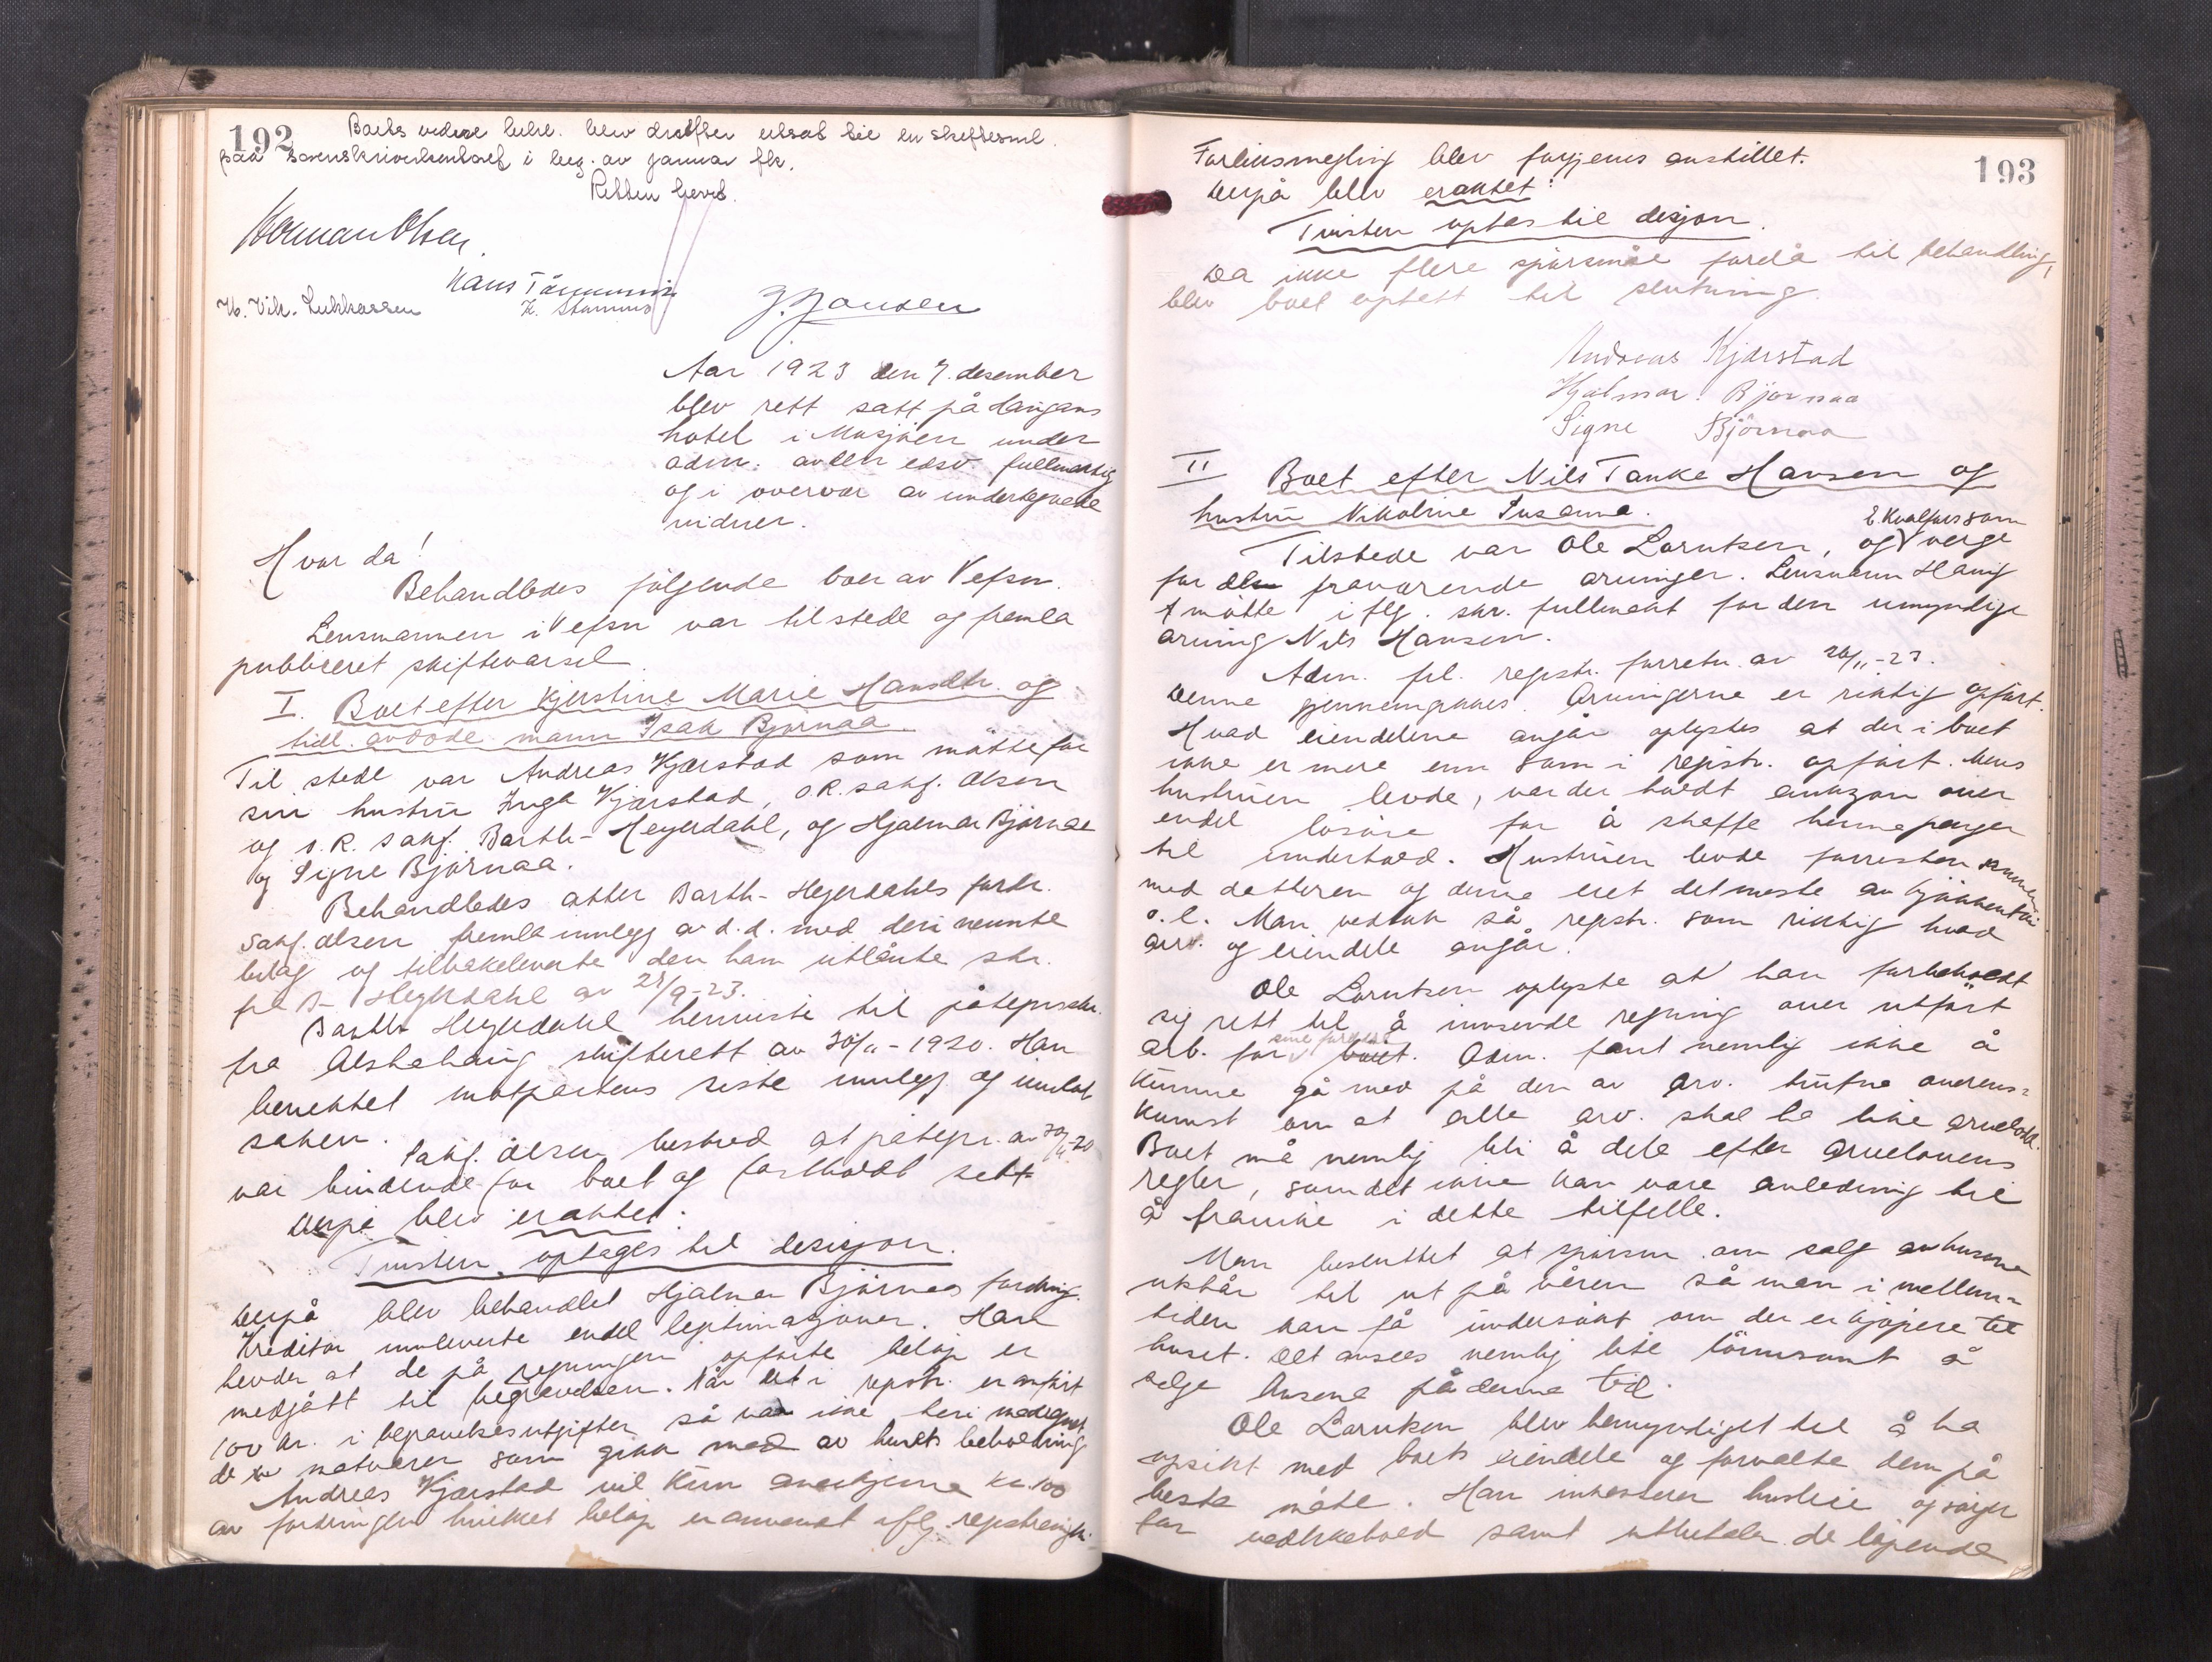 192
Boets videre behl. blev derefter utsat til en skiftesml.
paa Sorenskriverkontoret i beg. av januar flk.
Retten hevet.
Herman Olsen
Hans
H. Vilh. Lukkassen
J. Jansen
Aar 1923 den 7. desember
blev rett satt på Haugans
hotel i Mosjöen under
adm. av den edsv. fullmektig
og i overvær av undertegnede
vidner.
Hvor da!
Behandledes fölgende boer av Vefsn.
Lensmannen i Vefsn var tilstede og fremla
publiceret skiftevarsel.
I. Boet efter Kjerstine Marie Hansdtr. og
tidl. avdöde mann Isak Björnaa.
Til stede var Andreas Kjærstad som mötte for
sin hustru Inga Kjærstad, o.R. sakf. Olsen
og o.R. sakf. Barth-Heyerdahl, og Hjalmar Björnaa
og Signe Björnaa.
Behandledes atter Barth-Heyerdahls fordr.
Sakf. Olsen fremla innlegg av d.d. med deri nevnte
bilag og tilbakeleverte den ham utlånte skr.
fra B-Heyerdahl av 28/9-23.
Barth Heyerdahl henviste til påtegn.
fra Alstahaug skifterett av 30/11-1920. Han
benektet motpartens siste innlegg og innlot
saken.
Sakf. Olsen bestred at påtegn. av 30/11-20
var bindende for boet og fastholdt sitt
Derpå blev eraktet:
Tvisten optages til desisjon.
Derpå blev behandlet Hjalmar Björnaas fordring.
Kreditor innleverte endel legitimasjoner. Han
hevder at de på regningen opförte belöp er
medgått til begravelsen. Når det i regstr. er anfört
100 kr. i begravelsesutgifter så var ikke heri medregnet
de natvarer som gikk med av husets beholdning
Andreas Kjærstad vil kun anerkjenne kr. 100
av fordringen hvilket belöp er anvendt iflg. registrering
193
Forliksmegling blev forgjeves anstillet.
Derpå blev eraktet:
Tvisten optas til desjon.
Da ikke flere spörsmål forelå til behandling,
blev boet optatt til slutning.
Andreas Kjærstad
Hjalmar Björnaa
Signe Björnaa
II Boet efter Nils Tanke Hansen og
hustru Nikoline Susanna.
Tilstede var Ole Lorntsen, og E. Kvalfors som verge
for de fraværende arvinger. Lensmann Haug
mötte iflg. skr. fullmakt for den umyndige
arving Nils Hansen.
Adm. frl. registr. forretn. av 20/11-23.
Denne gjennemgikkes. Arvingerne er riktig opfört.
Hvad eiendelene angår oplystes at der i boet
ikke er mere enn som i registr. opfört. Mens
hustruen levde, var der holdt auksjon over
endel lösöre for å skaffe henne penger
til underhold. Hustruen levde forresten sammen
med datteren og denne eiet det meste av kjökkentöi
o.l. Man vedtok så registr. som riktig hvad
arv. og eiendele angår.
Ole Lorntsen oplyste at han forbeholdt
sig rett til å innsende regning over utfört
arb. for sine foreldre. Adm. fant nemlig ikke å
kunne gå med på den av arv. trufne overens-
komst om at alle arv. skal ha like arvelodd.
Boet må nemlig bli å dele efter arvelovens
regler, som det ikke kan være anledning til
å fravike i dette tilfelle.
Man besluttet at spörsm. om salg av husene
utstår til ut på våren så man i mellem-
tiden kan få undersökt om der er kjöpere til
huset. Det ansees nemlig lite lönnsomt å
selge husene på denne tid.
Ole Lorntsen blev bemyndiget til å ha
opsikt med boets eiendele og forvalte dem på
beste måte. Han inkasserer husleie og sörger
for vedlikehold samt utbetaler de löpende